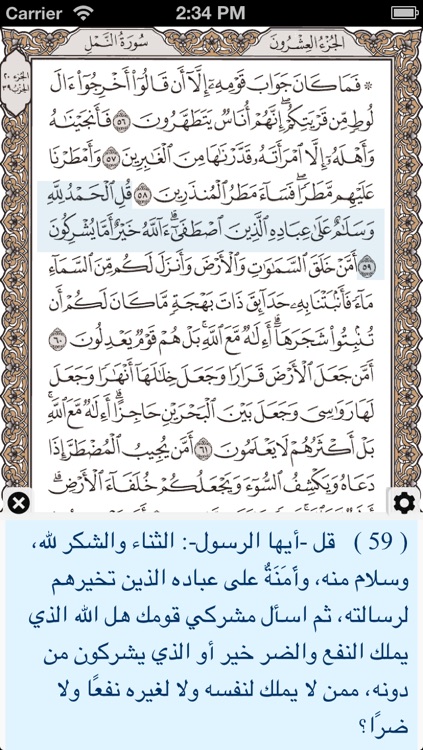 Carrier 2:34 PM
الجُزْءُ العِشْرُونَ سُورَةُ النَّمْلِ
الجزء ٢٠
الحزب ٣٩
۞ فَمَا كَانَ جَوَابَ قَوْمِهِۦٓ إِلَّآ أَن قَالُوٓاْ أَخْرِجُوٓاْ ءَالَ
لُوطٍ مِّن قَرْيَتِكُمْ ۖ إِنَّهُمْ أُنَاسٌ يَتَطَهَّرُونَ ٥٦ فَأَنجَيْنَٰهُ
وَأَهْلَهُۥٓ إِلَّا ٱمْرَأَتَهُۥ قَدَّرْنَٰهَا مِنَ ٱلْغَٰبِرِينَ ٥٧ وَأَمْطَرْنَا
عَلَيْهِم مَّطَرًا ۖ فَسَآءَ مَطَرُ ٱلْمُنذَرِينَ ٥٨ قُلِ ٱلْحَمْدُ لِلَّهِ
وَسَلَٰمٌ عَلَىٰ عِبَادِهِ ٱلَّذِينَ ٱصْطَفَىٰٓ ۗ ءَآللَّهُ خَيْرٌ أَمَّا يُشْرِكُونَ
٥٩ أَمَّنْ خَلَقَ ٱلسَّمَٰوَٰتِ وَٱلْأَرْضَ وَأَنزَلَ لَكُم مِّنَ ٱلسَّمَآءِ
مَآءً فَأَنۢبَتْنَا بِهِۦ حَدَآئِقَ ذَاتَ بَهْجَةٍ مَّا كَانَ لَكُمْ أَن
تُنۢبِتُواْ شَجَرَهَآ ۗ أَءِلَٰهٌ مَّعَ ٱللَّهِ ۚ بَلْ هُمْ قَوْمٌ يَعْدِلُونَ ٦٠
أَمَّن جَعَلَ ٱلْأَرْضَ قَرَارًا وَجَعَلَ خِلَٰلَهَآ أَنْهَٰرًا وَجَعَلَ
لَهَا رَوَٰسِىَ وَجَعَلَ بَيْنَ ٱلْبَحْرَيْنِ حَاجِزًا ۗ أَءِلَٰهٌ مَّعَ ٱللَّهِ ۚ
بَلْ أَكْثَرُهُمْ لَا يَعْلَمُونَ ٦١ أَمَّن يُجِيبُ ٱلْمُضْطَرَّ إِذَا
دَعَاهُ وَيَكْشِفُ ٱلسُّوٓءَ وَيَجْعَلُكُمْ خُلَفَآءَ ٱلْأَرْضِ ۗ
( 59 ) قل -أيها الرسول-: الثناء والشكر لله،
وسلام منه، وأَمَنَةٌ على عباده الذين تخيرهم
لرسالته، ثم اسأل مشركي قومك هل الله الذي
يملك النفع والضر خير أو الذي يشركون من
دونه، ممن لا يملك لنفسه ولا لغيره نفعًا ولا
ضرًا؟